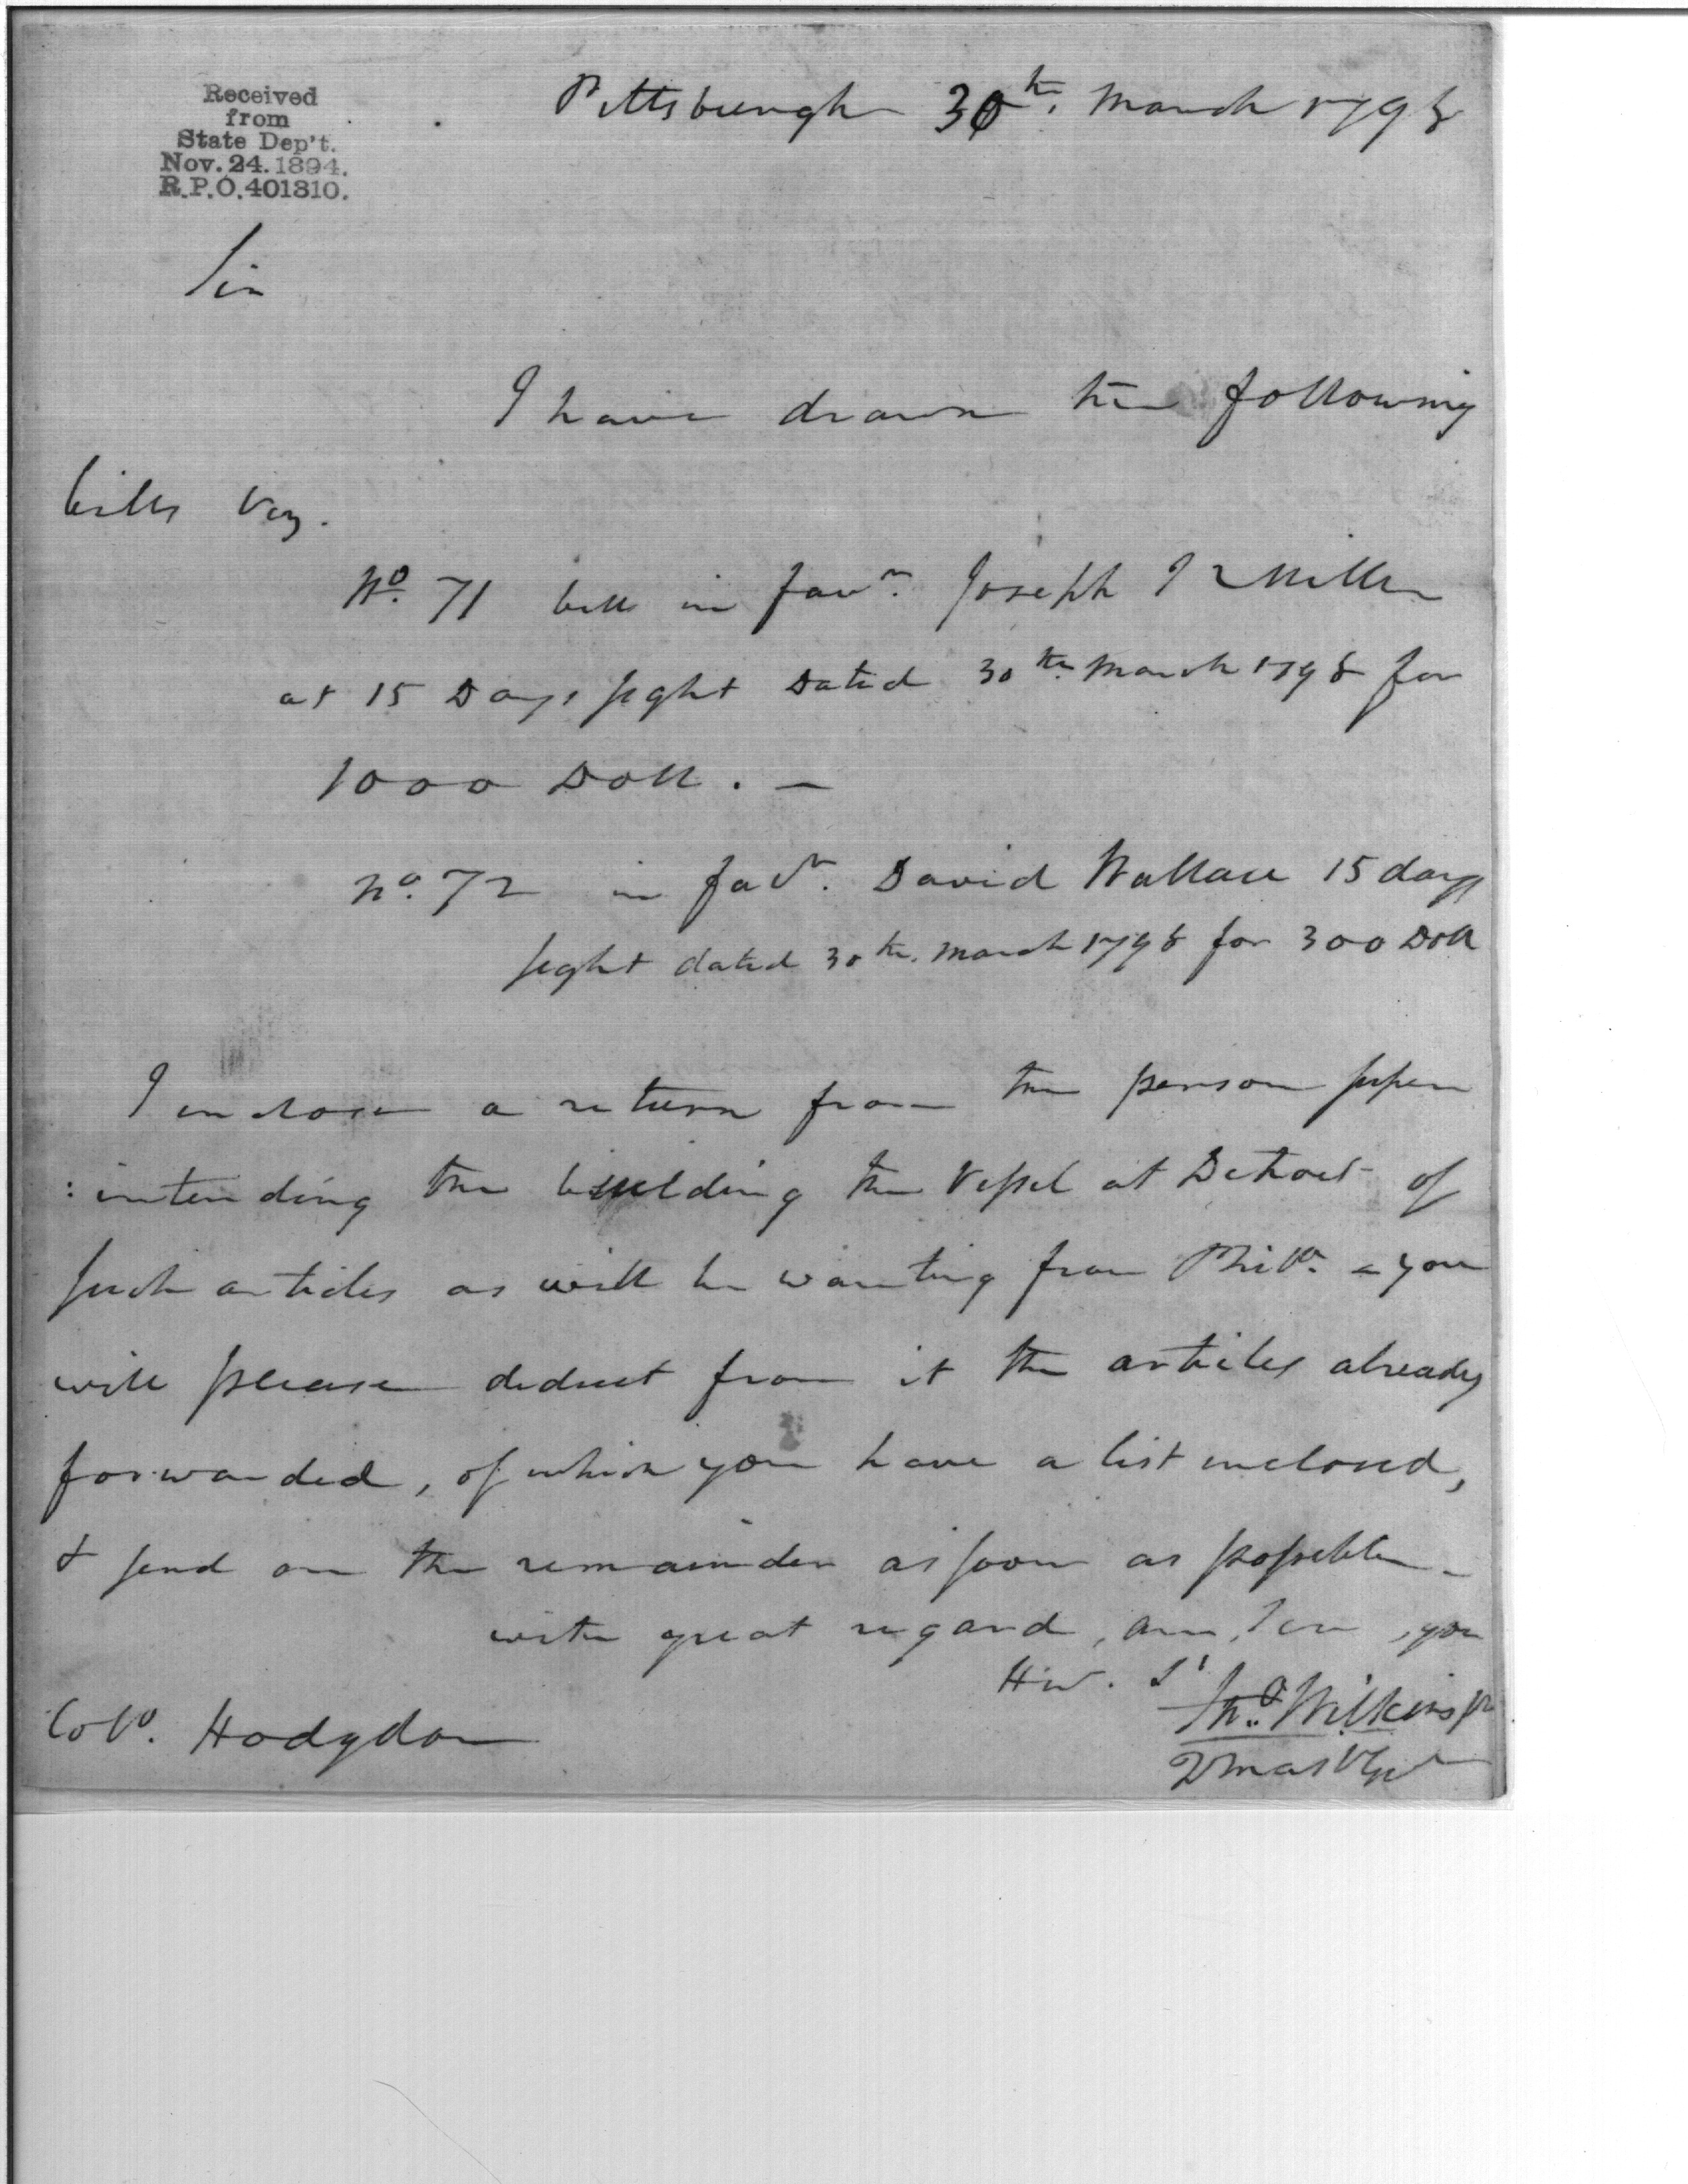 Received
from
State Dep't.
Nov. 24. 1894.
R.P.O. 401810.
Pittsburgh 30th. March 1798
Sir
I have drawn the following
bills Viz.
No. 71 bill in favr. Joseph Miller
at 15 Days sight Dated 30th March 1798 for
1000 Doll. —
No. 72 in favr. David Wallace 15 days
sight dated 30th. March 1798 for 300 Doll
I inclose a return from the person super
:intending the building the Vessel at Detroit of
such articles as will be wanting from Phila. - you
will please deduct from it the articles already
forwarded, of which you have a list inclosed,
& send on the remainder as soon as possible -
with great regard, am, Sir, your
Hbl. St
Colo. Hodgdon
Jno. Wilkins jr